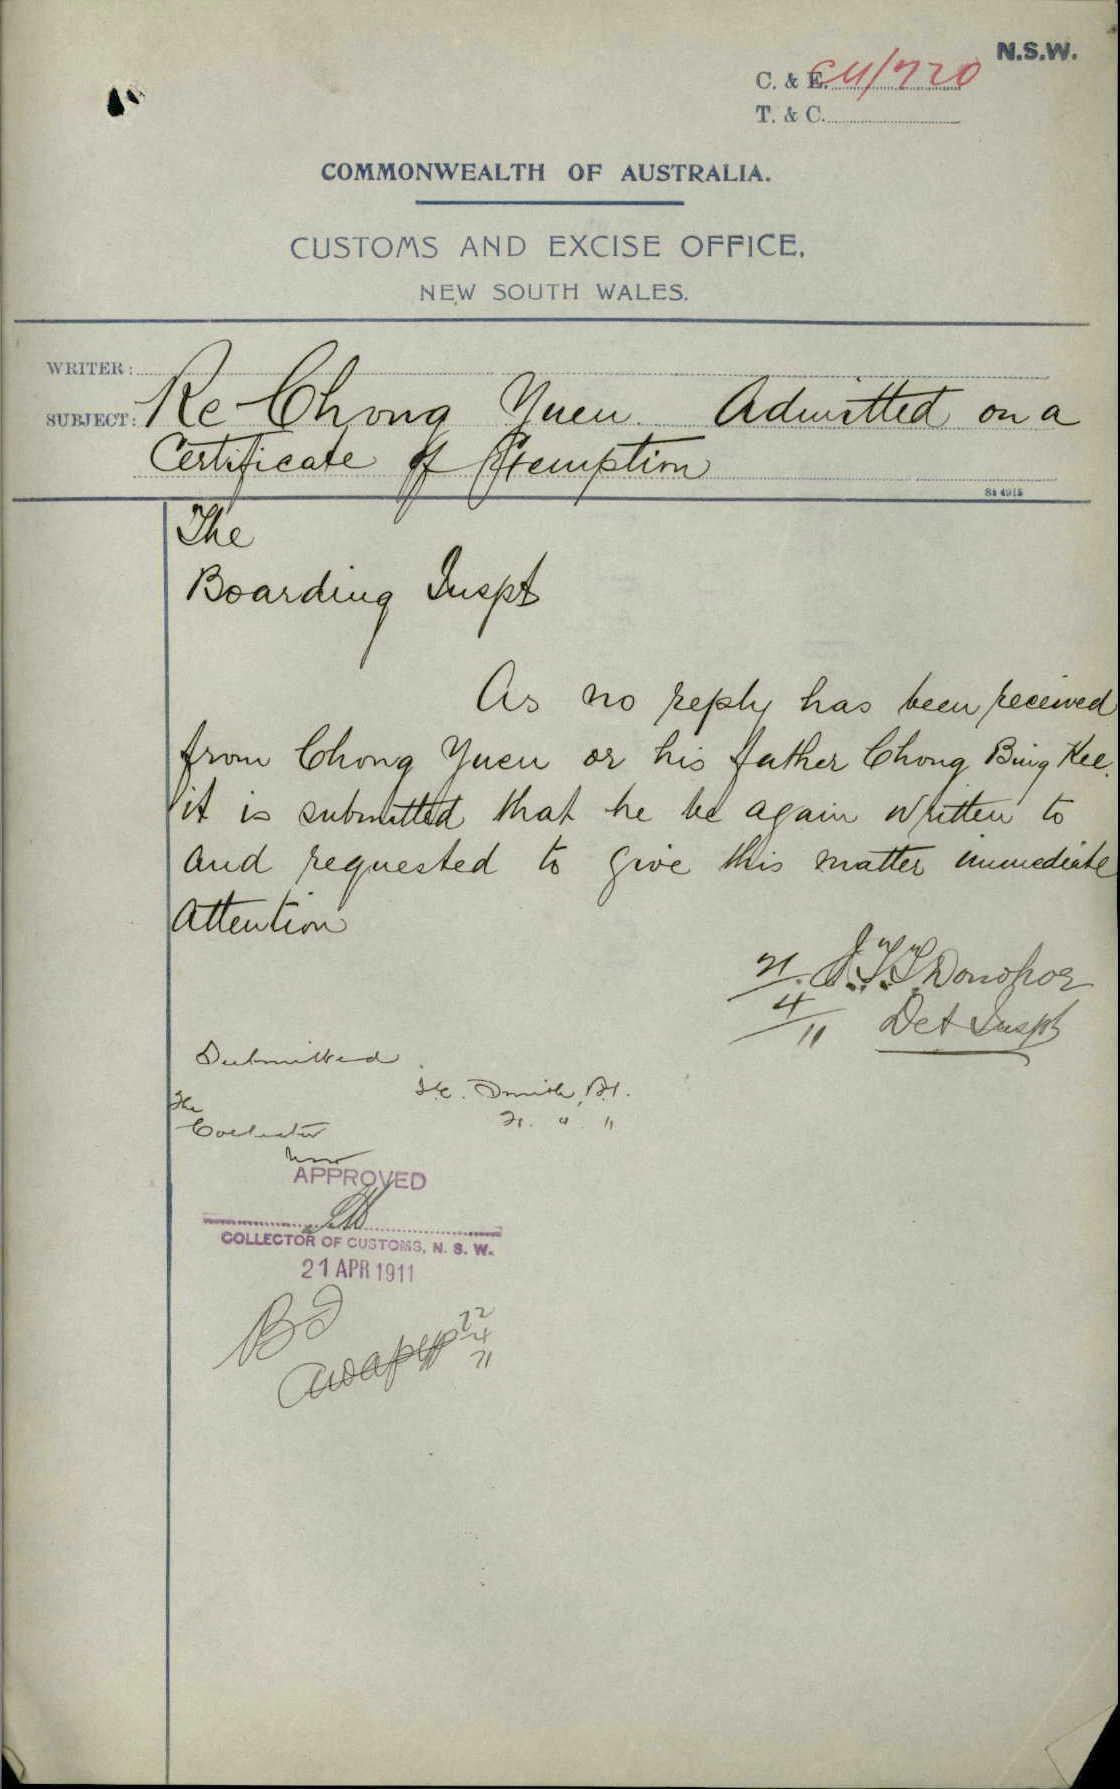 N.S.W.
C. & E. C11/720
T. & C.
COMMONWEALTH OF AUSTRALIA.
CUSTOMS AND EXCISE OFFICE,
NEW SOUTH WALES.
WRITER:
SUBJECT: Re Chong Yuen. Admitted on a
Certificate of Exemption
The
Boarding Inspt
As no reply has been received
from Chong Yuen or his father Chong Bing Kee.
it is submitted that he be again written to
and requested to give this matter immediate
Attention
J.T.T. Donohoe
21/4/11 Det Inspt
Submitted.
The
Collector
NSW
Smith, B.I.
21. " "
APPROVED
COLLECTOR OF CUSTOMS, N. S. W.
21 APR 1911
BI
22/4/11